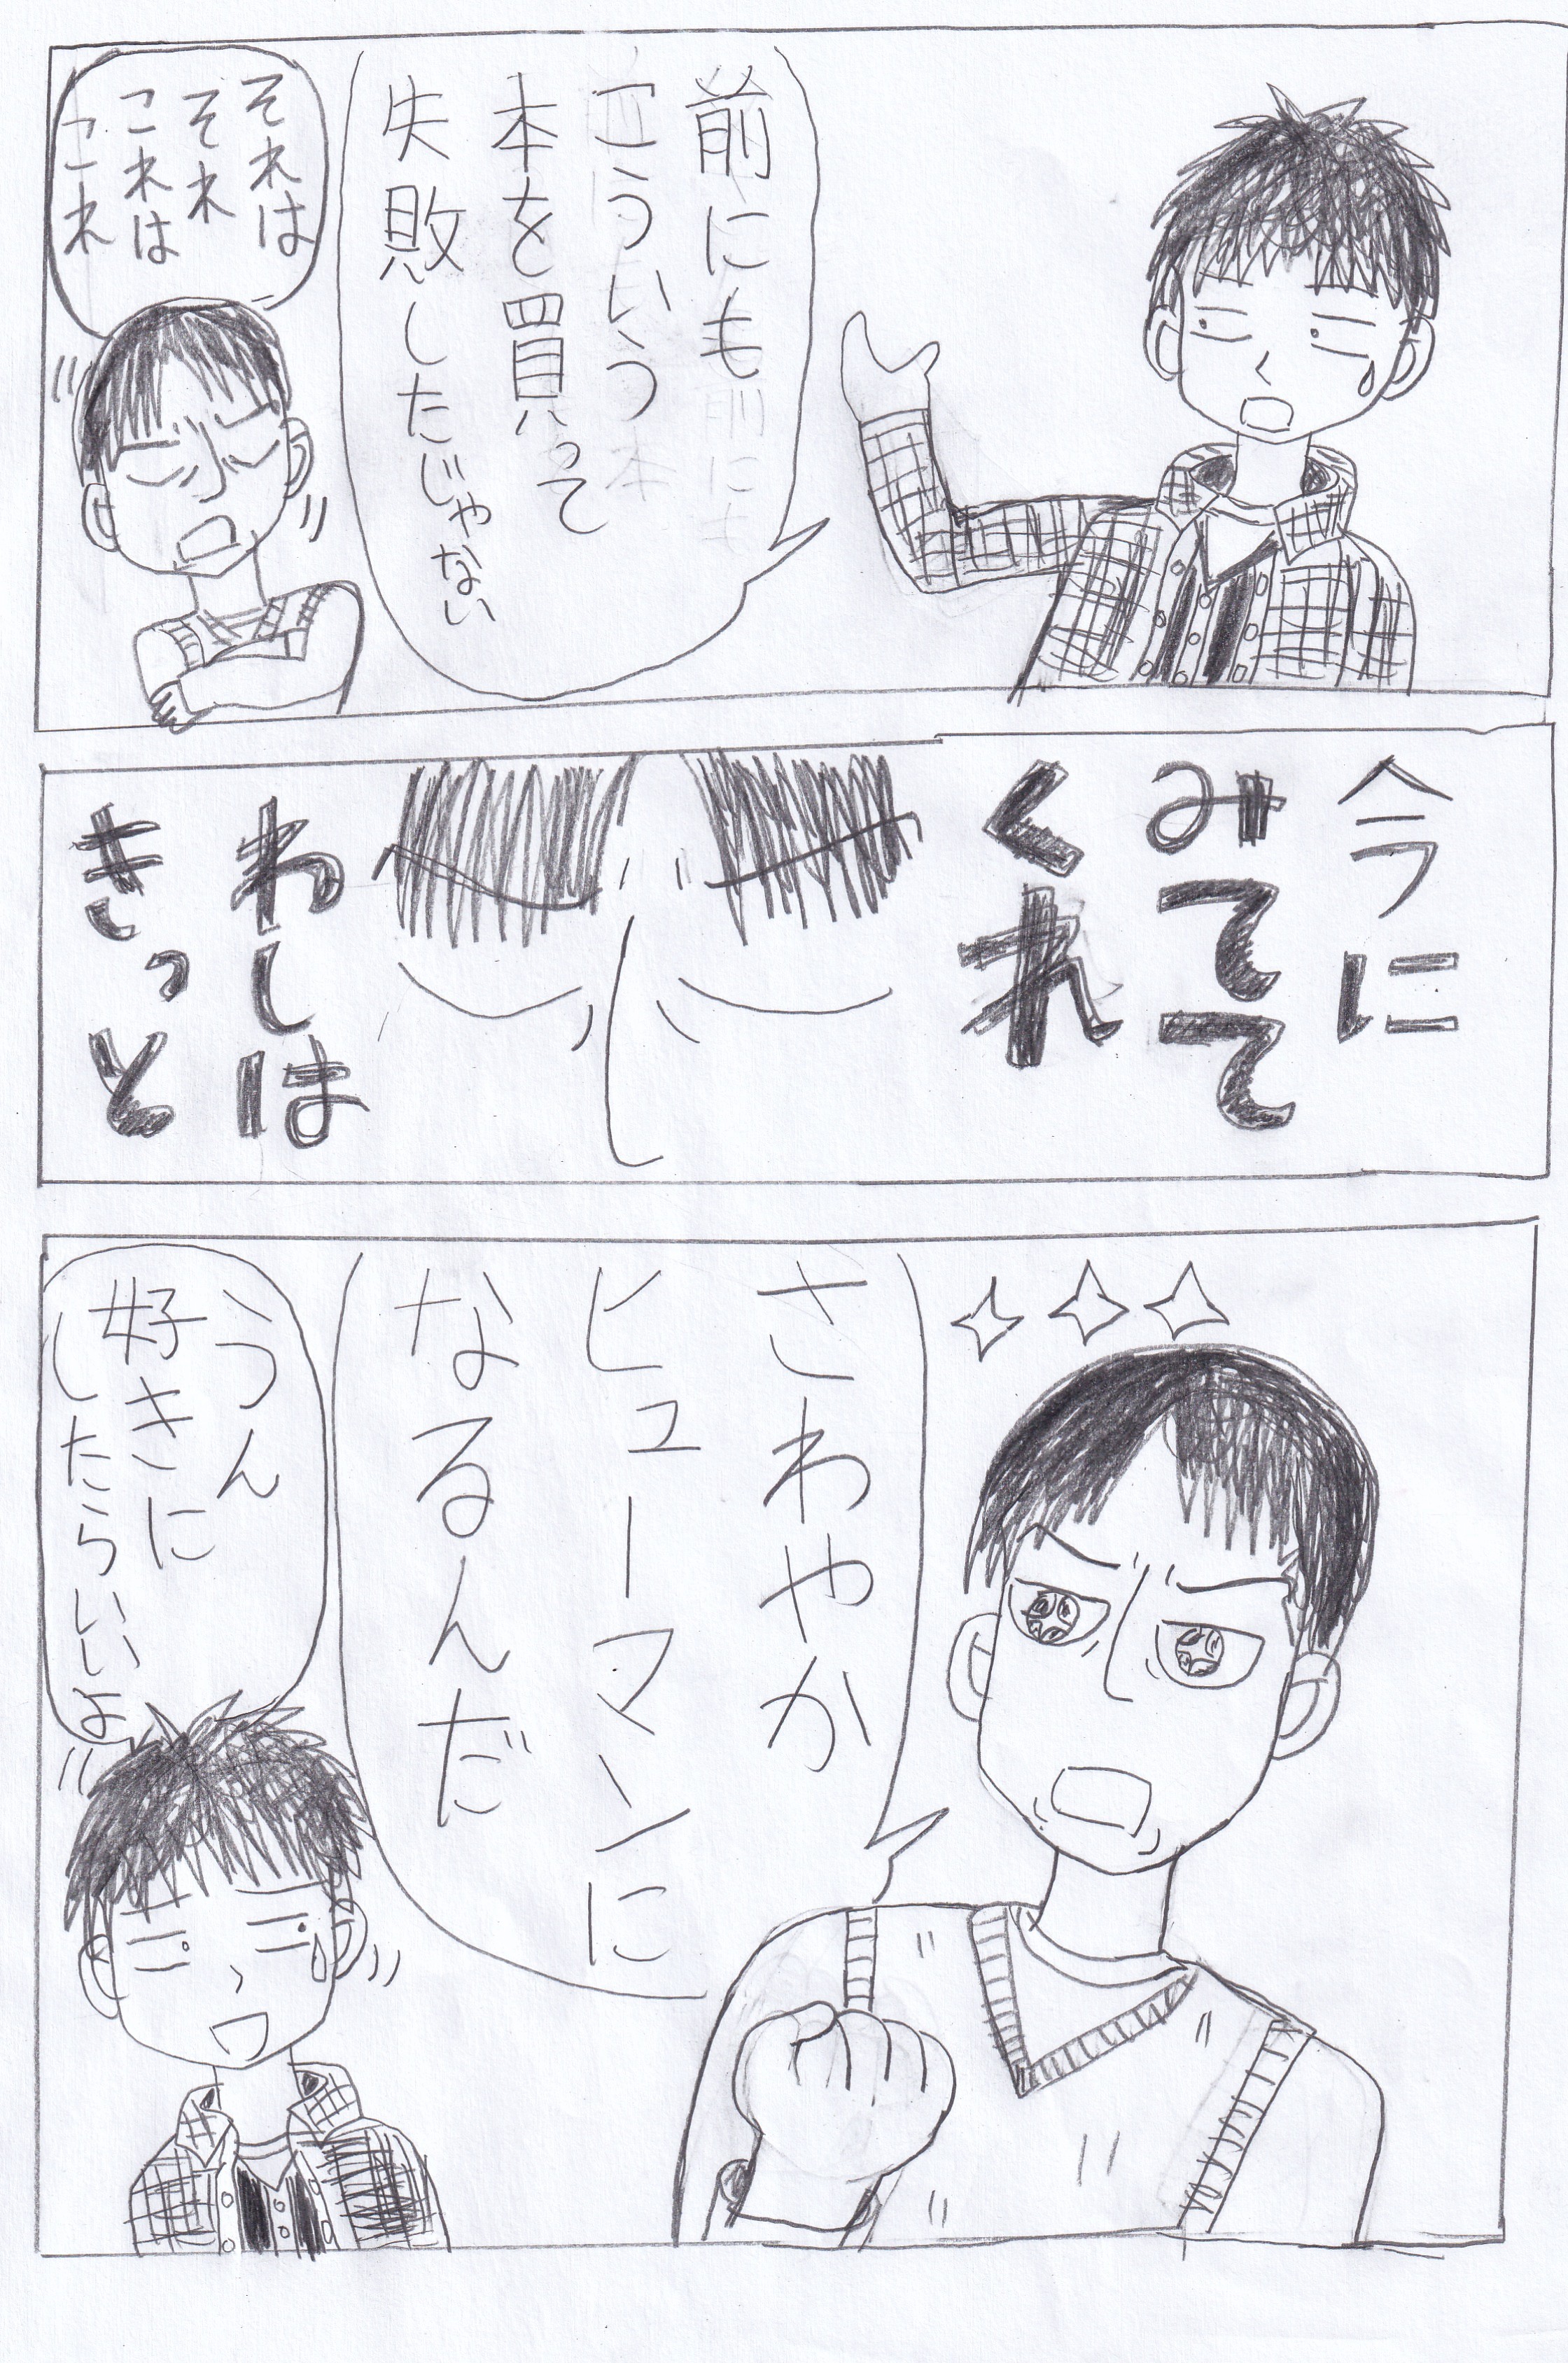 前にも
こういう
本を買って
失敗したじゃない
それは
それ
これは
これ
今に
みてて
くれ
わしは
きっと
さわやか
ヒューマンに
なるんだ
うん
好きに
したらいいよ